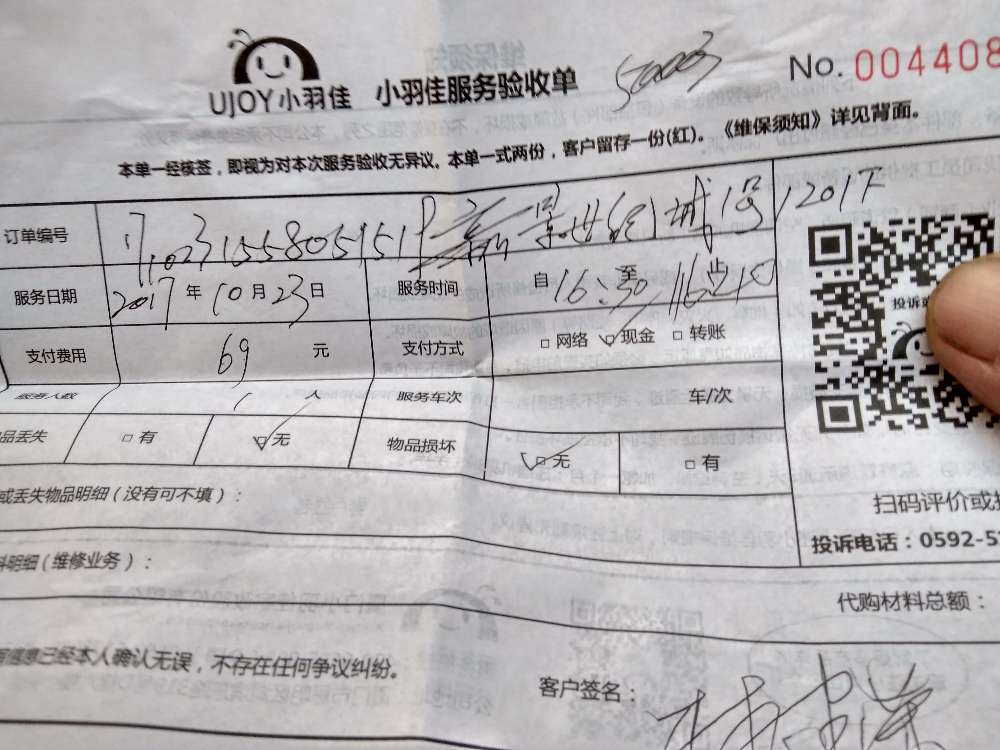 UJOY小羽佳 小羽佳服务验收单 No. 004408
本单一经核签，即视为对本次服务验收无异议。本单一式两份，客户留存一份(红)。《维保须知》详见背面。
订单编号
服务日期 2017 年 10 月 23 日 服务时间 自 16:30 至 止
支付费用 69 元 支付方式 □网络 ☑现金 □转账
服务人数 人 服务车次 车/次
品丢失 □有 ☑无 物品损坏 ☑无 □有
或丢失物品明细（没有可不填）：
投诉
扫码评价或
投诉电话：0592-5
料明细（维修业务）：
代购材料总额：
信息已经本人确认无误，不存在任何争议纠纷。
客户签名：